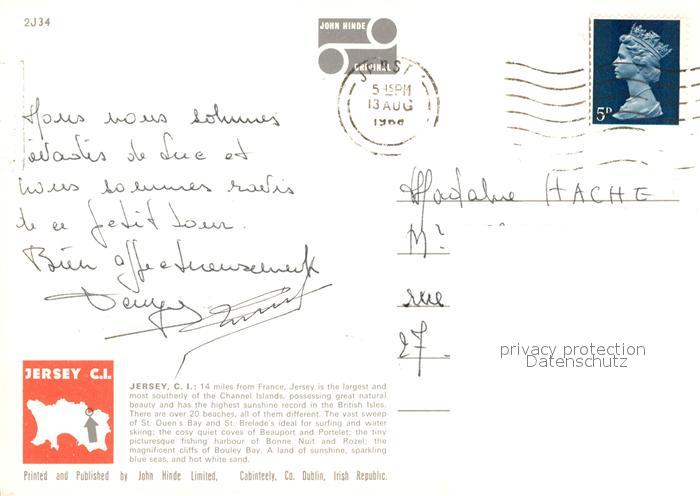 2J34
JOHN HINDE
ORIGINAL
5 45PM
13 AUG
196
5D
Nous nous sommes
évadés de Luc et
nous sommes ravis
de ce petit tour.
Bien affectueusement
Madame HACHE
Mr
rue
27
privacy protection
Datenschutz
JERSEY C.I.
JERSEY, C. I.: 14 miles from France, Jersey is the largest and
most southerly of the Channel Islands, possessing great natural
beauty and has the highest sunshine record in the British Isles.
There are over 20 beaches, all of them different. The vast sweep
of St. Ouen's Bay and St. Brelade's ideal for surfing and water
skiing; the cosy quiet coves of Beauport and Portelet; the tiny
picturesque fishing harbour of Bonne Nuit and Rozel; the
magnificent cliffs of Bouley Bay. A land of sunshine, sparkling
blue seas, and hot white sand.
Printed and Published by John Hinde Limited, Cabinteely, Co. Dublin, Irish Republic.